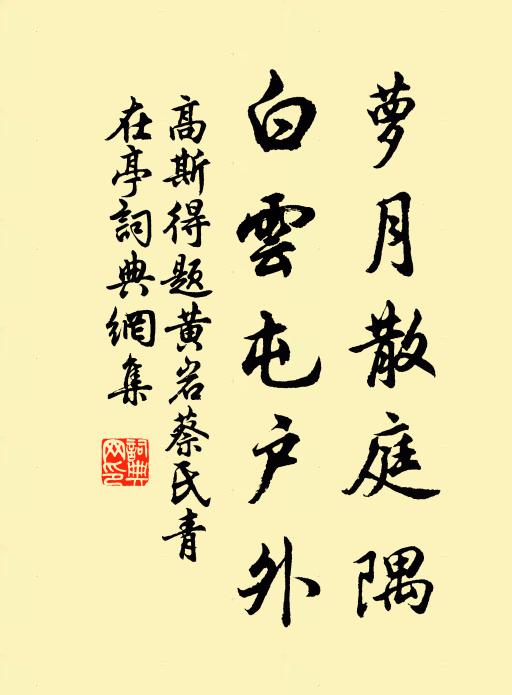 萝月散庭隅
白雲屯户外
高斯得题黄岩蔡氏青
在亭詞典網集
詞典网印